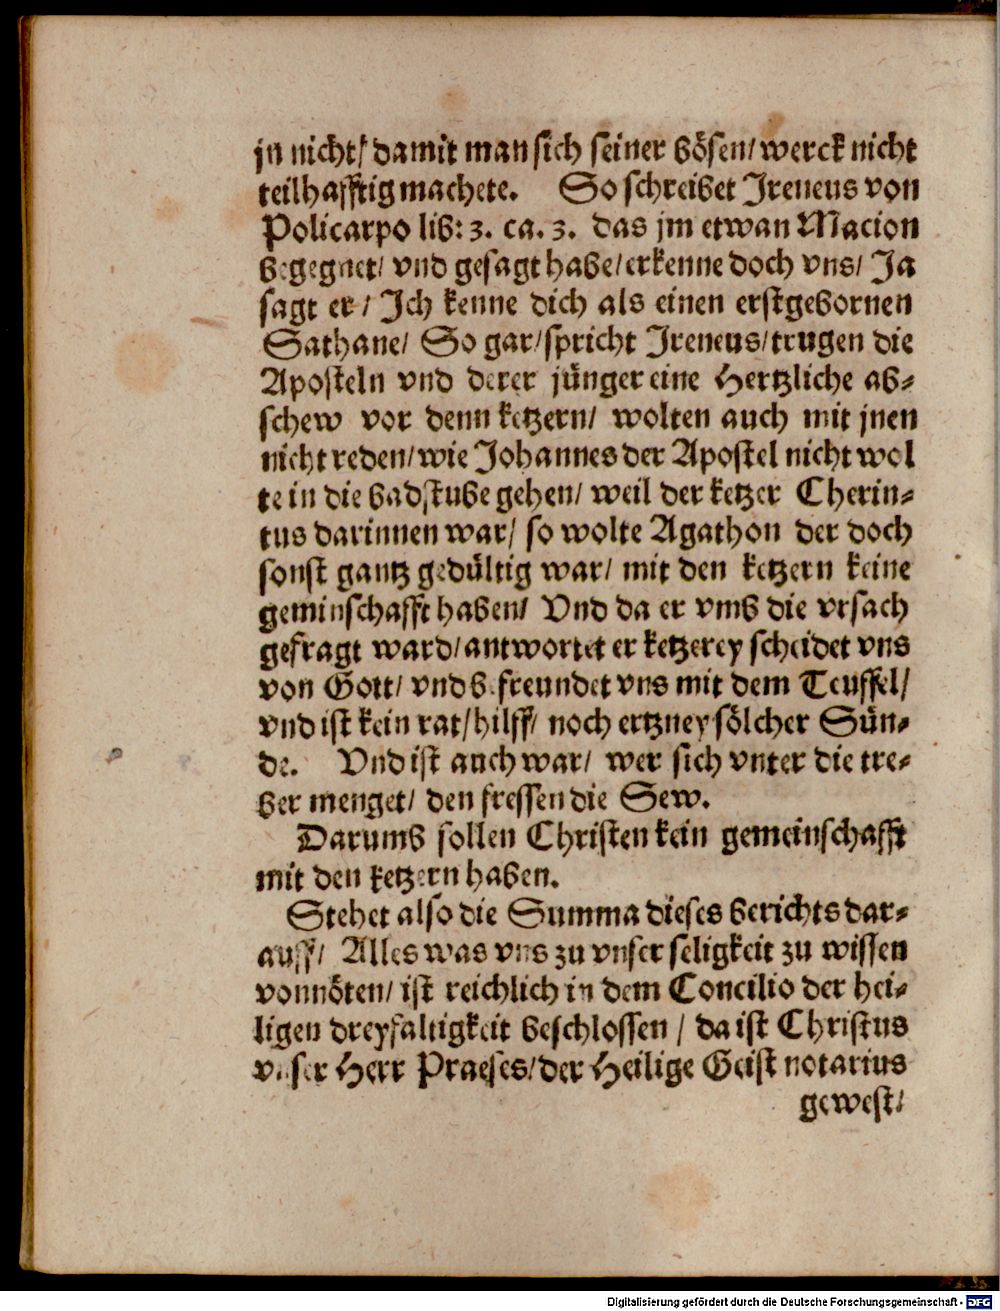 jn nicht/ damit man sich seiner bösen/ werck nicht
teilhafftig machete. So schreibet Ireneus von
Policarpo lib: 3. ca. 3. das jm etwan Macion
begegnet/ vnd gesagt habe/ erkenne doch vns/ Ja
sagt er/ Ich kenne dich als einen erstgebornen
Sathane/ So gar/ spricht Ireneus/ trugen die
Aposteln vnd derer jünger eine Hertzliche ab-
schew vor denn ketzern/ wolten auch mit jnen
nicht reden/ wie Johannes der Apostel nicht wol
te in die badstube gehen/ weil der ketzer Cherin-
tus darinnen war/ so wolte Agathon der doch
sonst gantz gedültig war/ mit den ketzern keine
geminschafft haben/ Vnd da er vmb die vrsach
gefragt ward/ antwortet er ketzerey scheidet vns
von Gott/ vnd befreundet vns mit dem Teuffel/
vnd ist kein rat/ hilff/ noch ertzney sölcher Sün-
de. Vnd ist auch war/ wer sich vnter die tre-
ber menget/ den fressen die Sew.
Darumb sollen Christen kein gemeinschafft
mit den ketzern haben.
Stehet also die Summa dieses berichts dar-
auff/ Alles was vns zu vnser seligkeit zu wissen
vonnöten/ ist reichlich in dem Concilio der hei-
ligen dreyfaltigkeit beschlossen/ da ist Christus
vnser Herr Praeses/ der Heilige Geist notarius
gewest/
Digitalisierung gefördert durch die Deutsche Forschungsgemeinschaft - DFG